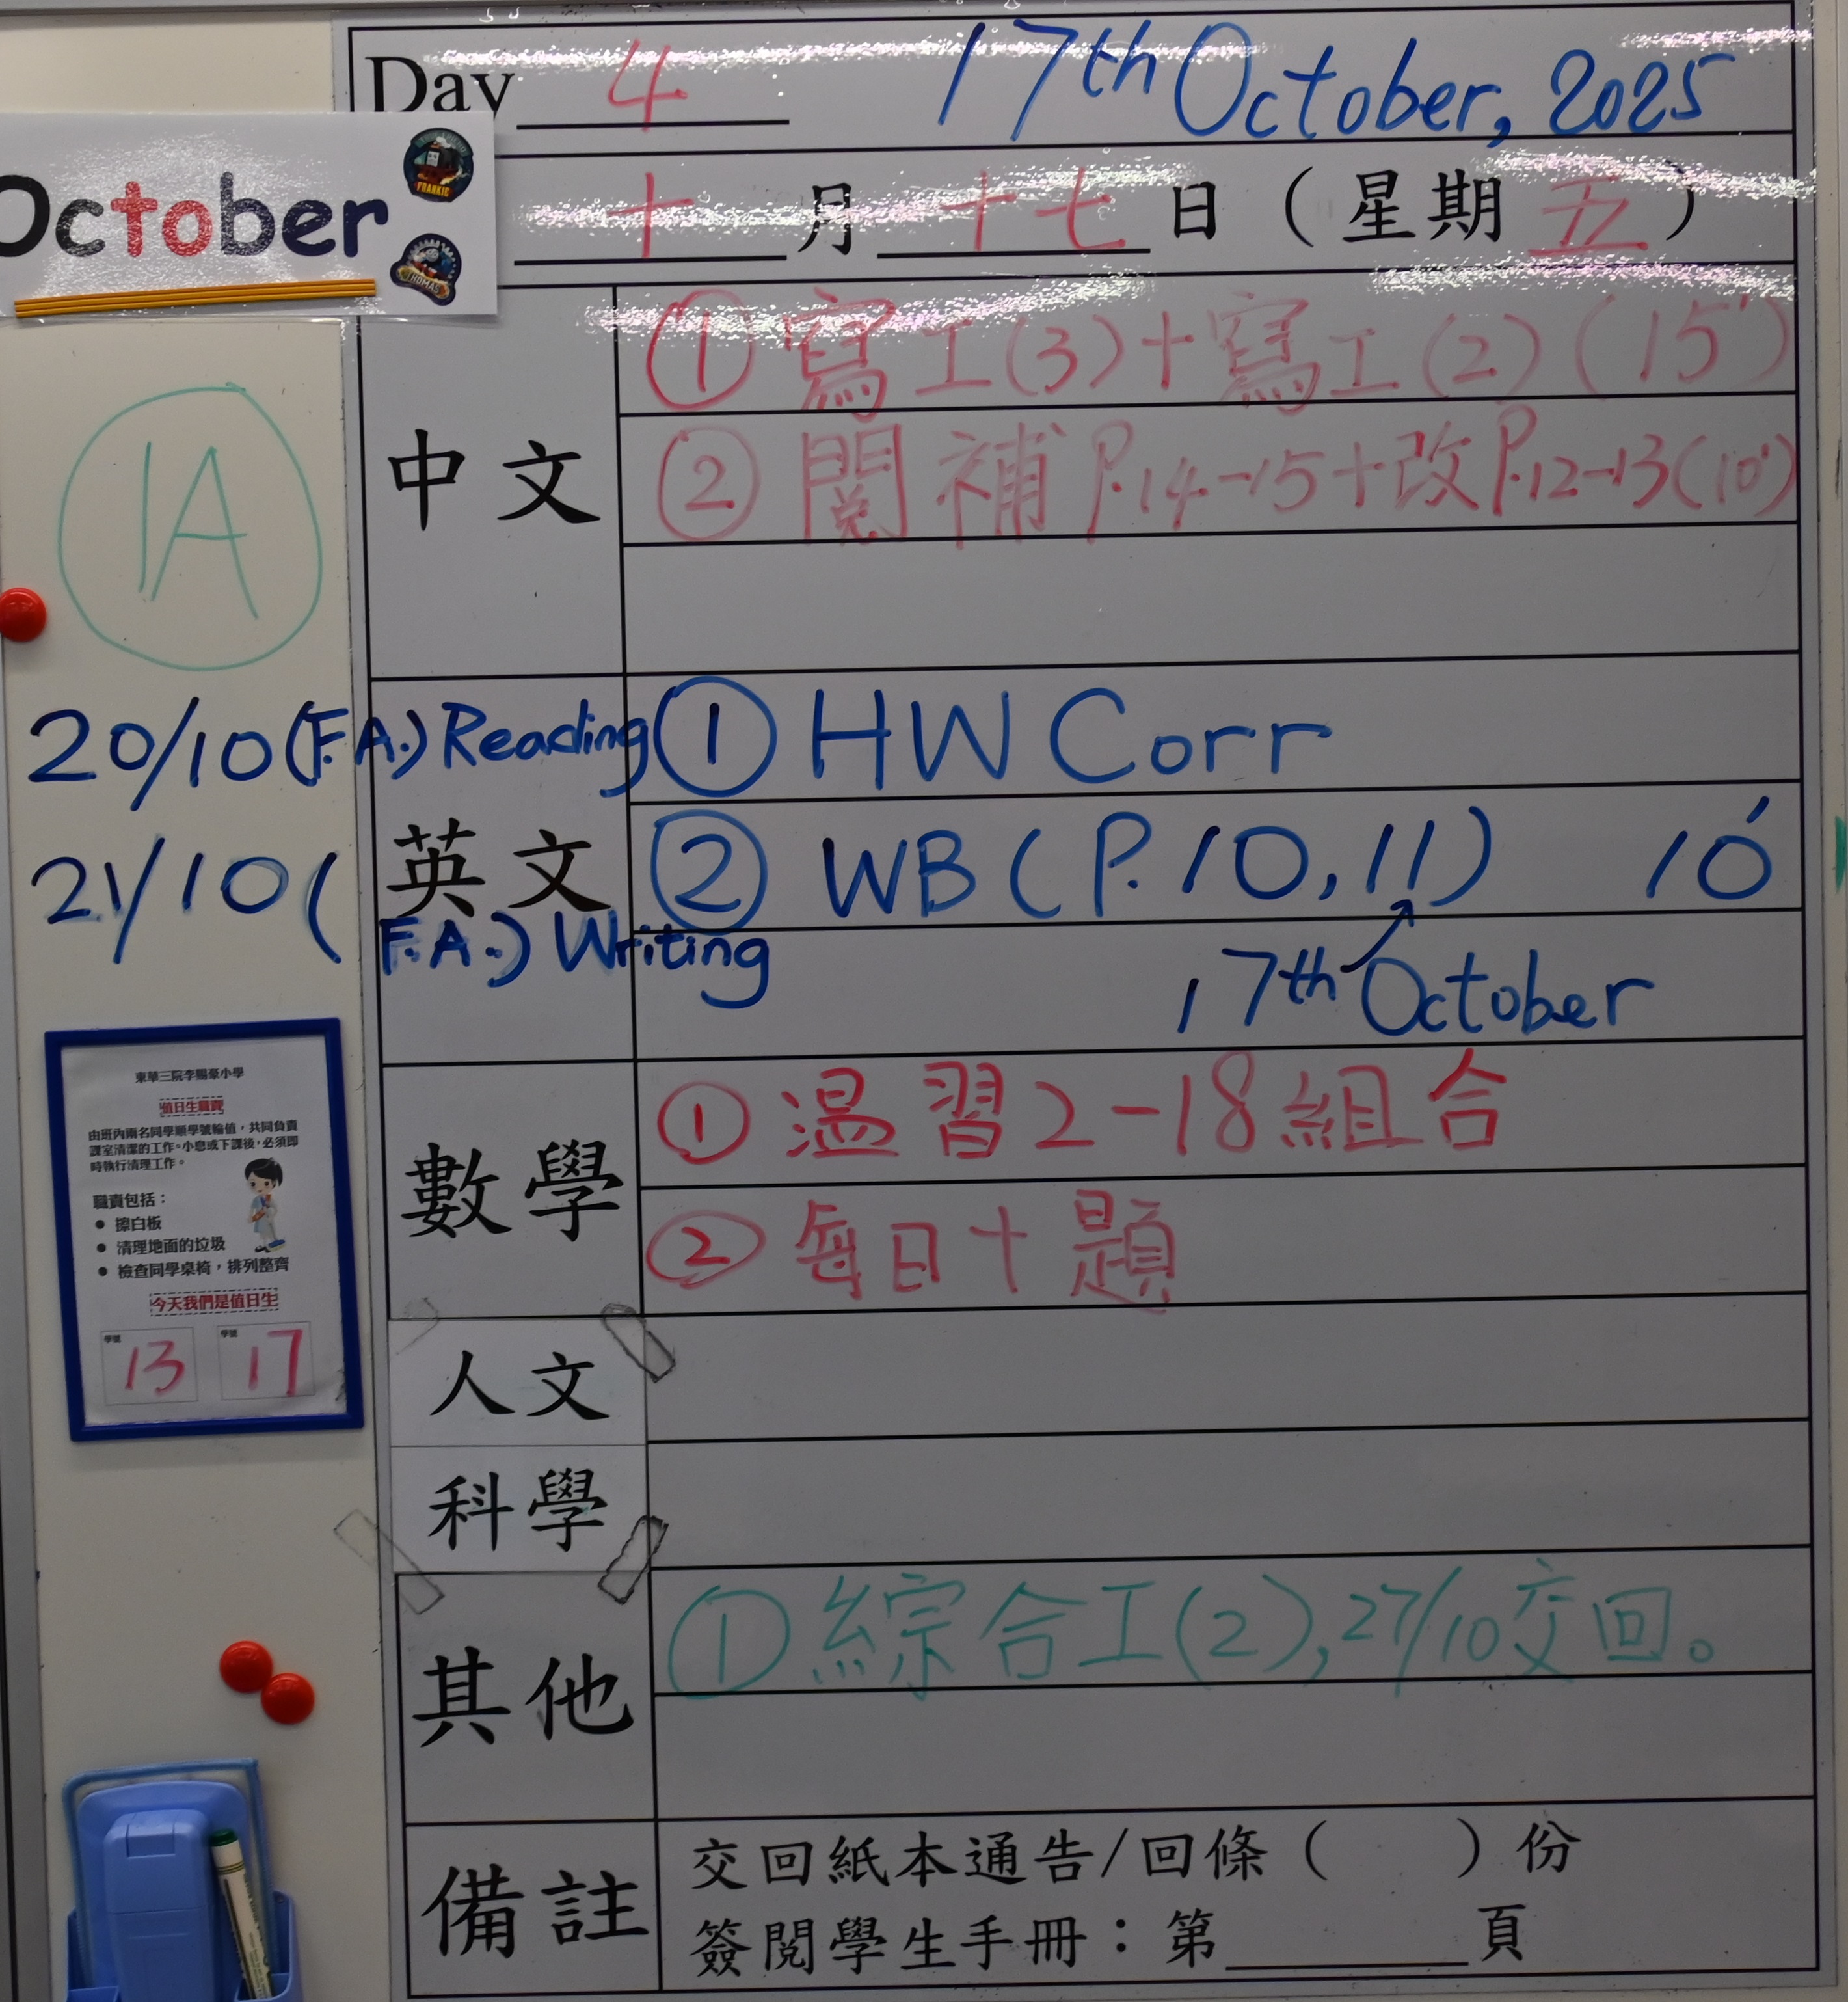 Day 4 17th October, 2025
October
FRANKIE
THOMAS
十 月 十七 日 ( 星期 五 )
1A
中文
① 寫工(3)+寫工(2) (15')
② 閱補 P.14-15+改P.12-13(10')
20/10 (F.A.) Reading
21/10 (F.A.) Writing
英文
① HW Corr
② WB (P.10,11) 10'
17th October
數學
① 温習2-18組合
② 每日十題
東華三院李賜豪小學
值日生職責
由班內兩名同學順學號輪值，共同負責
課室清潔的工作。小息或下課後，必須即
時執行清理工作。
職責包括：
● 擦白板
● 清理地面的垃圾
● 檢查同學桌椅，排列整齊
今天我們是值日生
學號 13 學號 17
人文
科學
其他
① 綜合工(2), 27/10交回。
備註
交回紙本通告/回條 ( ) 份
簽閱學生手冊：第______頁